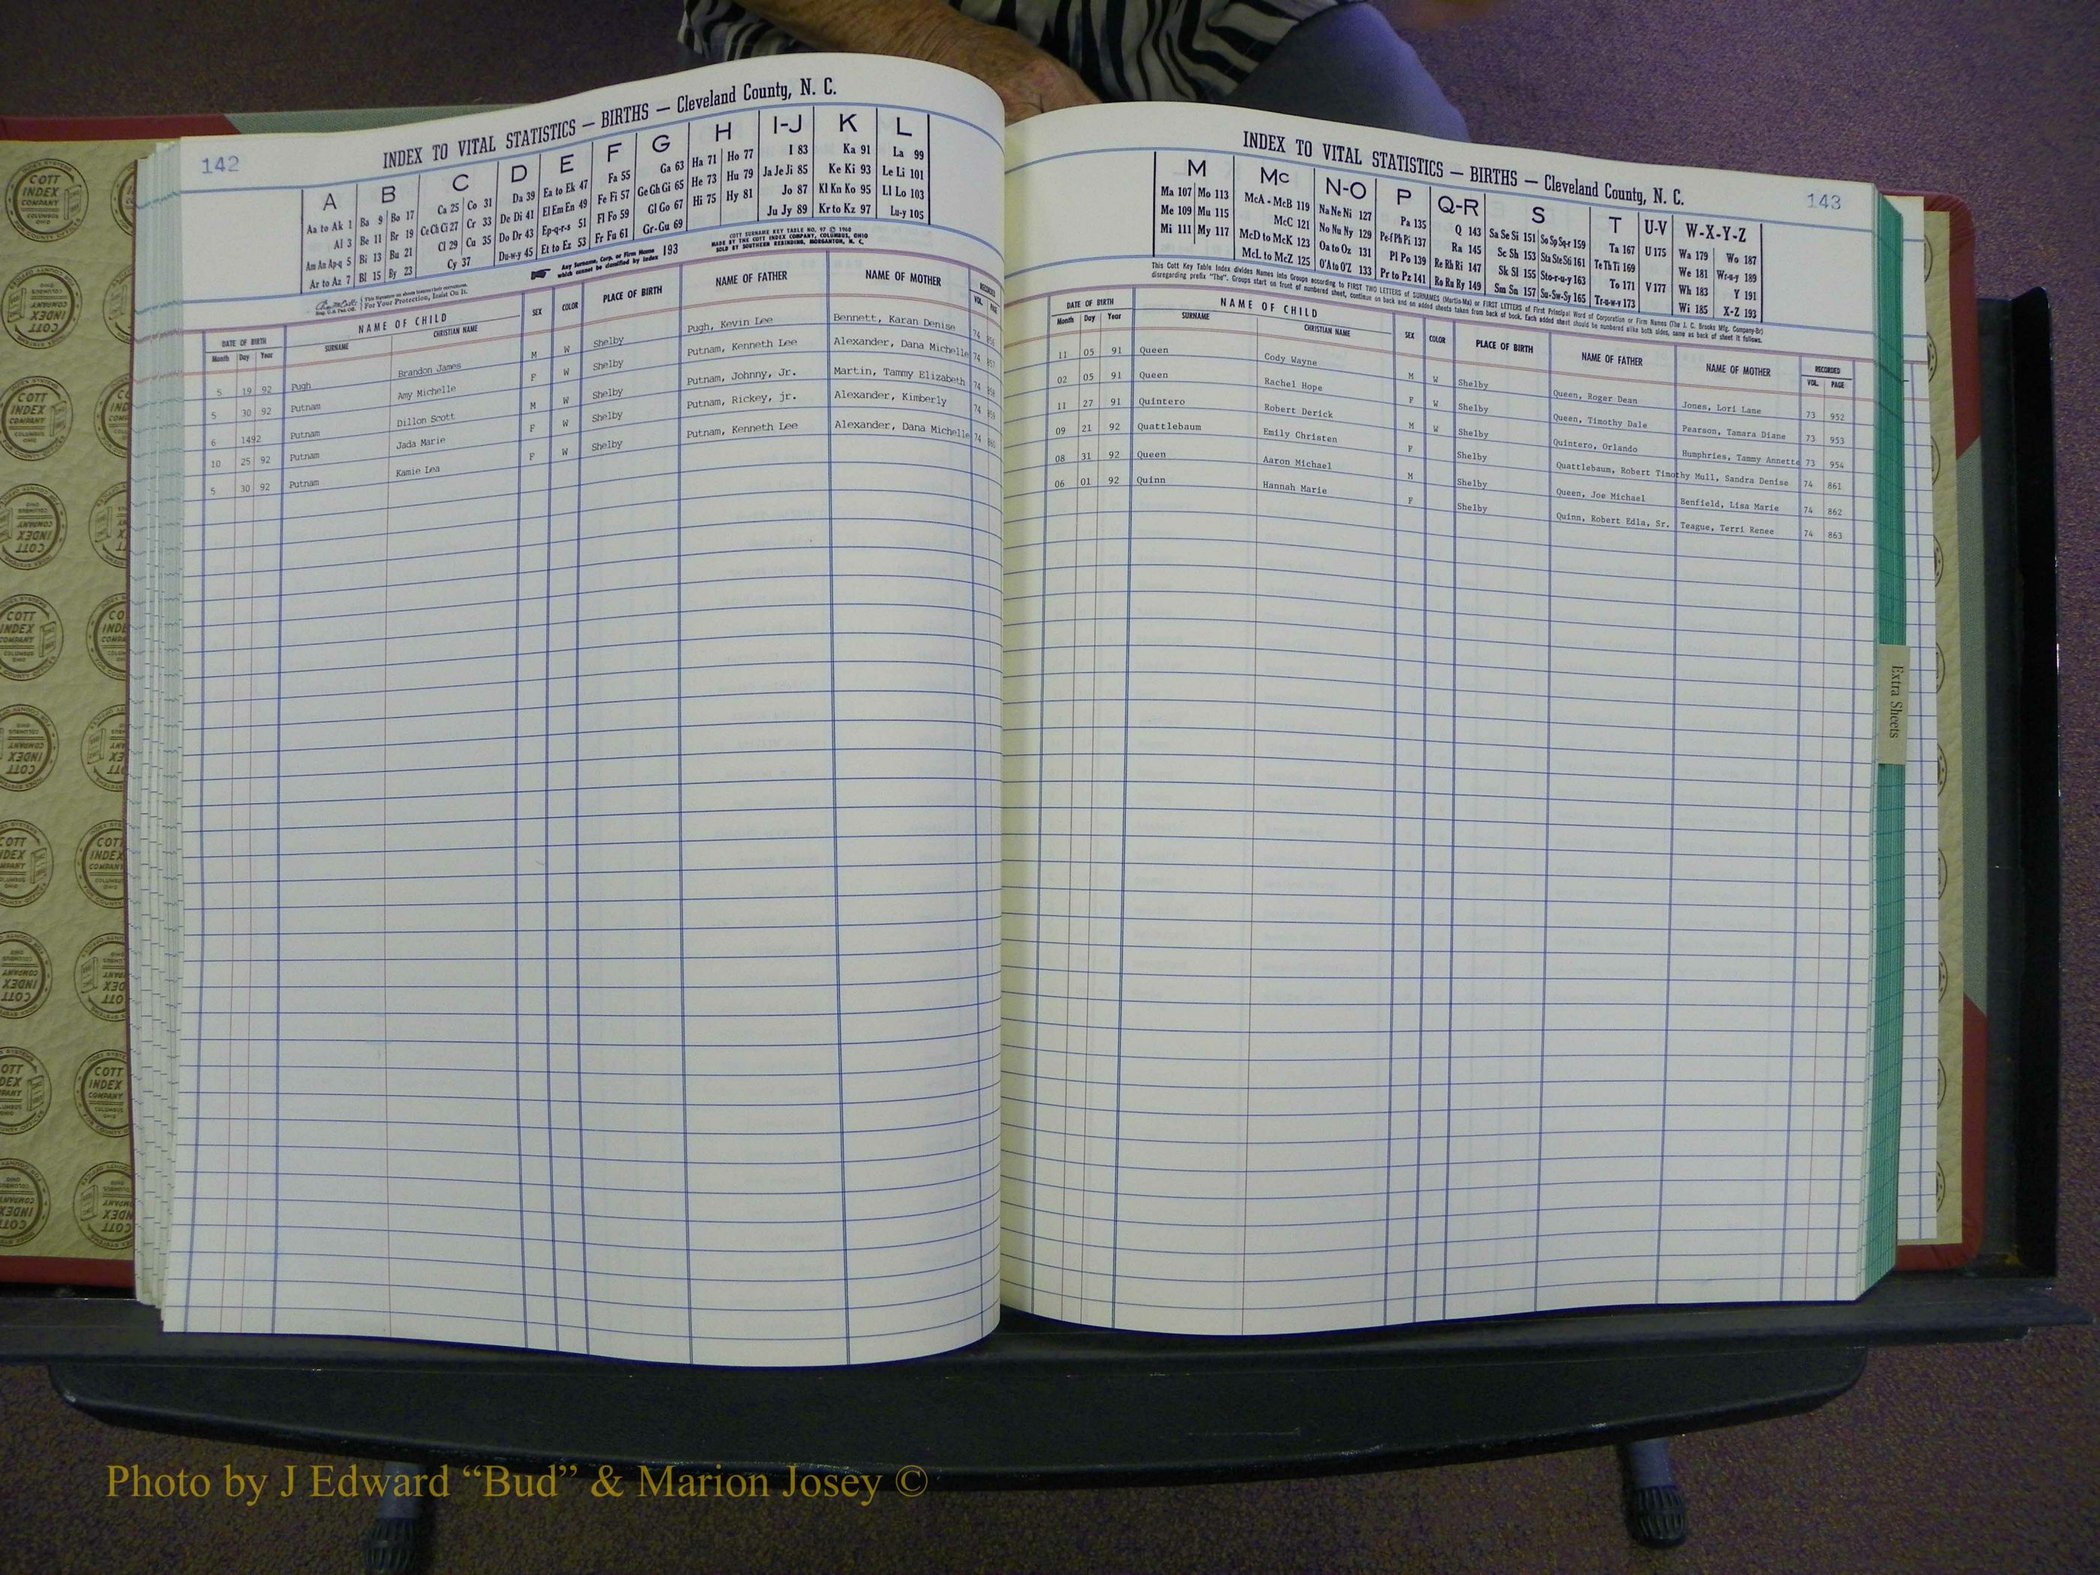 142
INDEX TO VITAL STATISTICS — BIRTHS — Cleveland County, N. C.
A B C D E F G H I-J K L
Aa to Ak 1 Ba 9 Bo 17 Ca 25 Co 31 Da 39 Ea to Ek 47 Fa 55 Ga 63 Ha 71 Ho 77 I 83 Ka 91 La 99
Al 3 Be 11 Br 19 Ce Ch Ci 27 Cr 33 De Di 41 El Em En 49 Fe Fi 57 Ge Gh Gi 65 He 73 Hu 79 Ja Je Ji 85 Ke Ki 93 Le Li 101
Am An Ap-q 5 Bi 13 Bu 21 Cl 29 Cu 35 Do Dr 43 Ep-q-r-s 51 Fl Fo 59 Gl Go 67 Hi 75 Hy 81 Jo 87 Kl Kn Ko 95 Ll Lo 103
Ar to Az 7 Bl 15 By 23 Cy 37 Du-w-y 45 Et to Ez 53 Fr Fu 61 Gr-Gu 69 Ju Jy 89 Kr to Kz 97 Lu-y 105
Any Surname, Corp. or Firm Name which cannot be classified by index 193
COTT SURNAME KEY TABLE NO. 97 © 1960
MADE BY THE COTT INDEX COMPANY, COLUMBUS, OHIO
SOLD BY SOUTHERN REBINDING, MORGANTON, N. C.
For Your Protection, Insist On It.
DATE OF BIRTH NAME OF CHILD SEX COLOR PLACE OF BIRTH NAME OF FATHER NAME OF MOTHER RECORDED
Month Day Year SURNAME CHRISTIAN NAME VOL. PAGE
5 19 92 Pugh Brandon James M W Shelby Pugh, Kevin Lee Bennett, Karan Denise 74
5 30 92 Putnam Amy Michelle F W Shelby Putnam, Kenneth Lee Alexander, Dana Michelle 74
6 1492 Putnam Dillon Scott M W Shelby Putnam, Johnny, Jr. Martin, Tammy Elizabeth 74
10 25 92 Putnam Jada Marie F W Shelby Putnam, Rickey, jr. Alexander, Kimberly 74
5 30 92 Putnam Kamie Lea F W Shelby Putnam, Kenneth Lee Alexander, Dana Michelle 74
INDEX TO VITAL STATISTICS — BIRTHS — Cleveland County, N. C.
143
M Mc N-O P Q-R S T U-V W-X-Y-Z
Ma 107 Mo 113 McA - McB 119 Na Ne Ni 127 Pa 135 Q 143 Sa Se Si 151 So Sp Sq-r 159 Ta 167 U 175 Wa 179 Wo 187
Me 109 Mu 115 McC 121 No Nu Ny 129 Pe-f Ph Pi 137 Ra 145 Sc Sh 153 Sta Ste Sti 161 Te Th Ti 169 We 181 Wr-u-y 189
Mi 111 My 117 McD to McK 123 Oa to Oz 131 Pl Po 139 Re Rh Ri 147 Sk Sl 155 Sto-r-u-y 163 To 171 V 177 Wh 183 Y 191
McL to McZ 125 O'A to O'Z 133 Pr to Pz 141 Ro Ru Ry 149 Sm Sn 157 Su-Sw-Sy 165 Tr-u-w-y 173 Wi 185 X-Z 193
This Cott Key Table Index divides Names into Groups according to FIRST TWO LETTERS of SURNAMES (Martin-Ma) or FIRST LETTERS of First Principal Word of Corporation or Firm Names (The J. C. Brooks Mfg. Company-Br)
disregarding prefix "The". Groups start on front of numbered sheet, continue on back and on added sheets taken from back of book. Each added sheet should be numbered alike both sides, same as back of sheet it follows.
DATE OF BIRTH NAME OF CHILD SEX COLOR PLACE OF BIRTH NAME OF FATHER NAME OF MOTHER RECORDED
Month Day Year SURNAME CHRISTIAN NAME VOL. PAGE
11 05 91 Queen Cody Wayne M W Shelby Queen, Roger Dean Jones, Lori Lane 73 952
02 05 91 Queen Rachel Hope F W Shelby Queen, Timothy Dale Pearson, Tamara Diane 73 953
11 27 91 Quintero Robert Derick M W Shelby Quintero, Orlando Humphries, Tammy Annette 73 954
09 21 92 Quattlebaum Emily Christen F Shelby Quattlebaum, Robert Timothy Mull, Sandra Denise 74 861
08 31 92 Queen Aaron Michael M Shelby Queen, Joe Michael Benfield, Lisa Marie 74 862
06 01 92 Quinn Hannah Marie F Shelby Quinn, Robert Edla, Sr. Teague, Terri Renee 74 863
Extra Sheets
COTT INDEX COMPANY COLUMBUS OHIO
Photo by J Edward “Bud” & Marion Josey ©